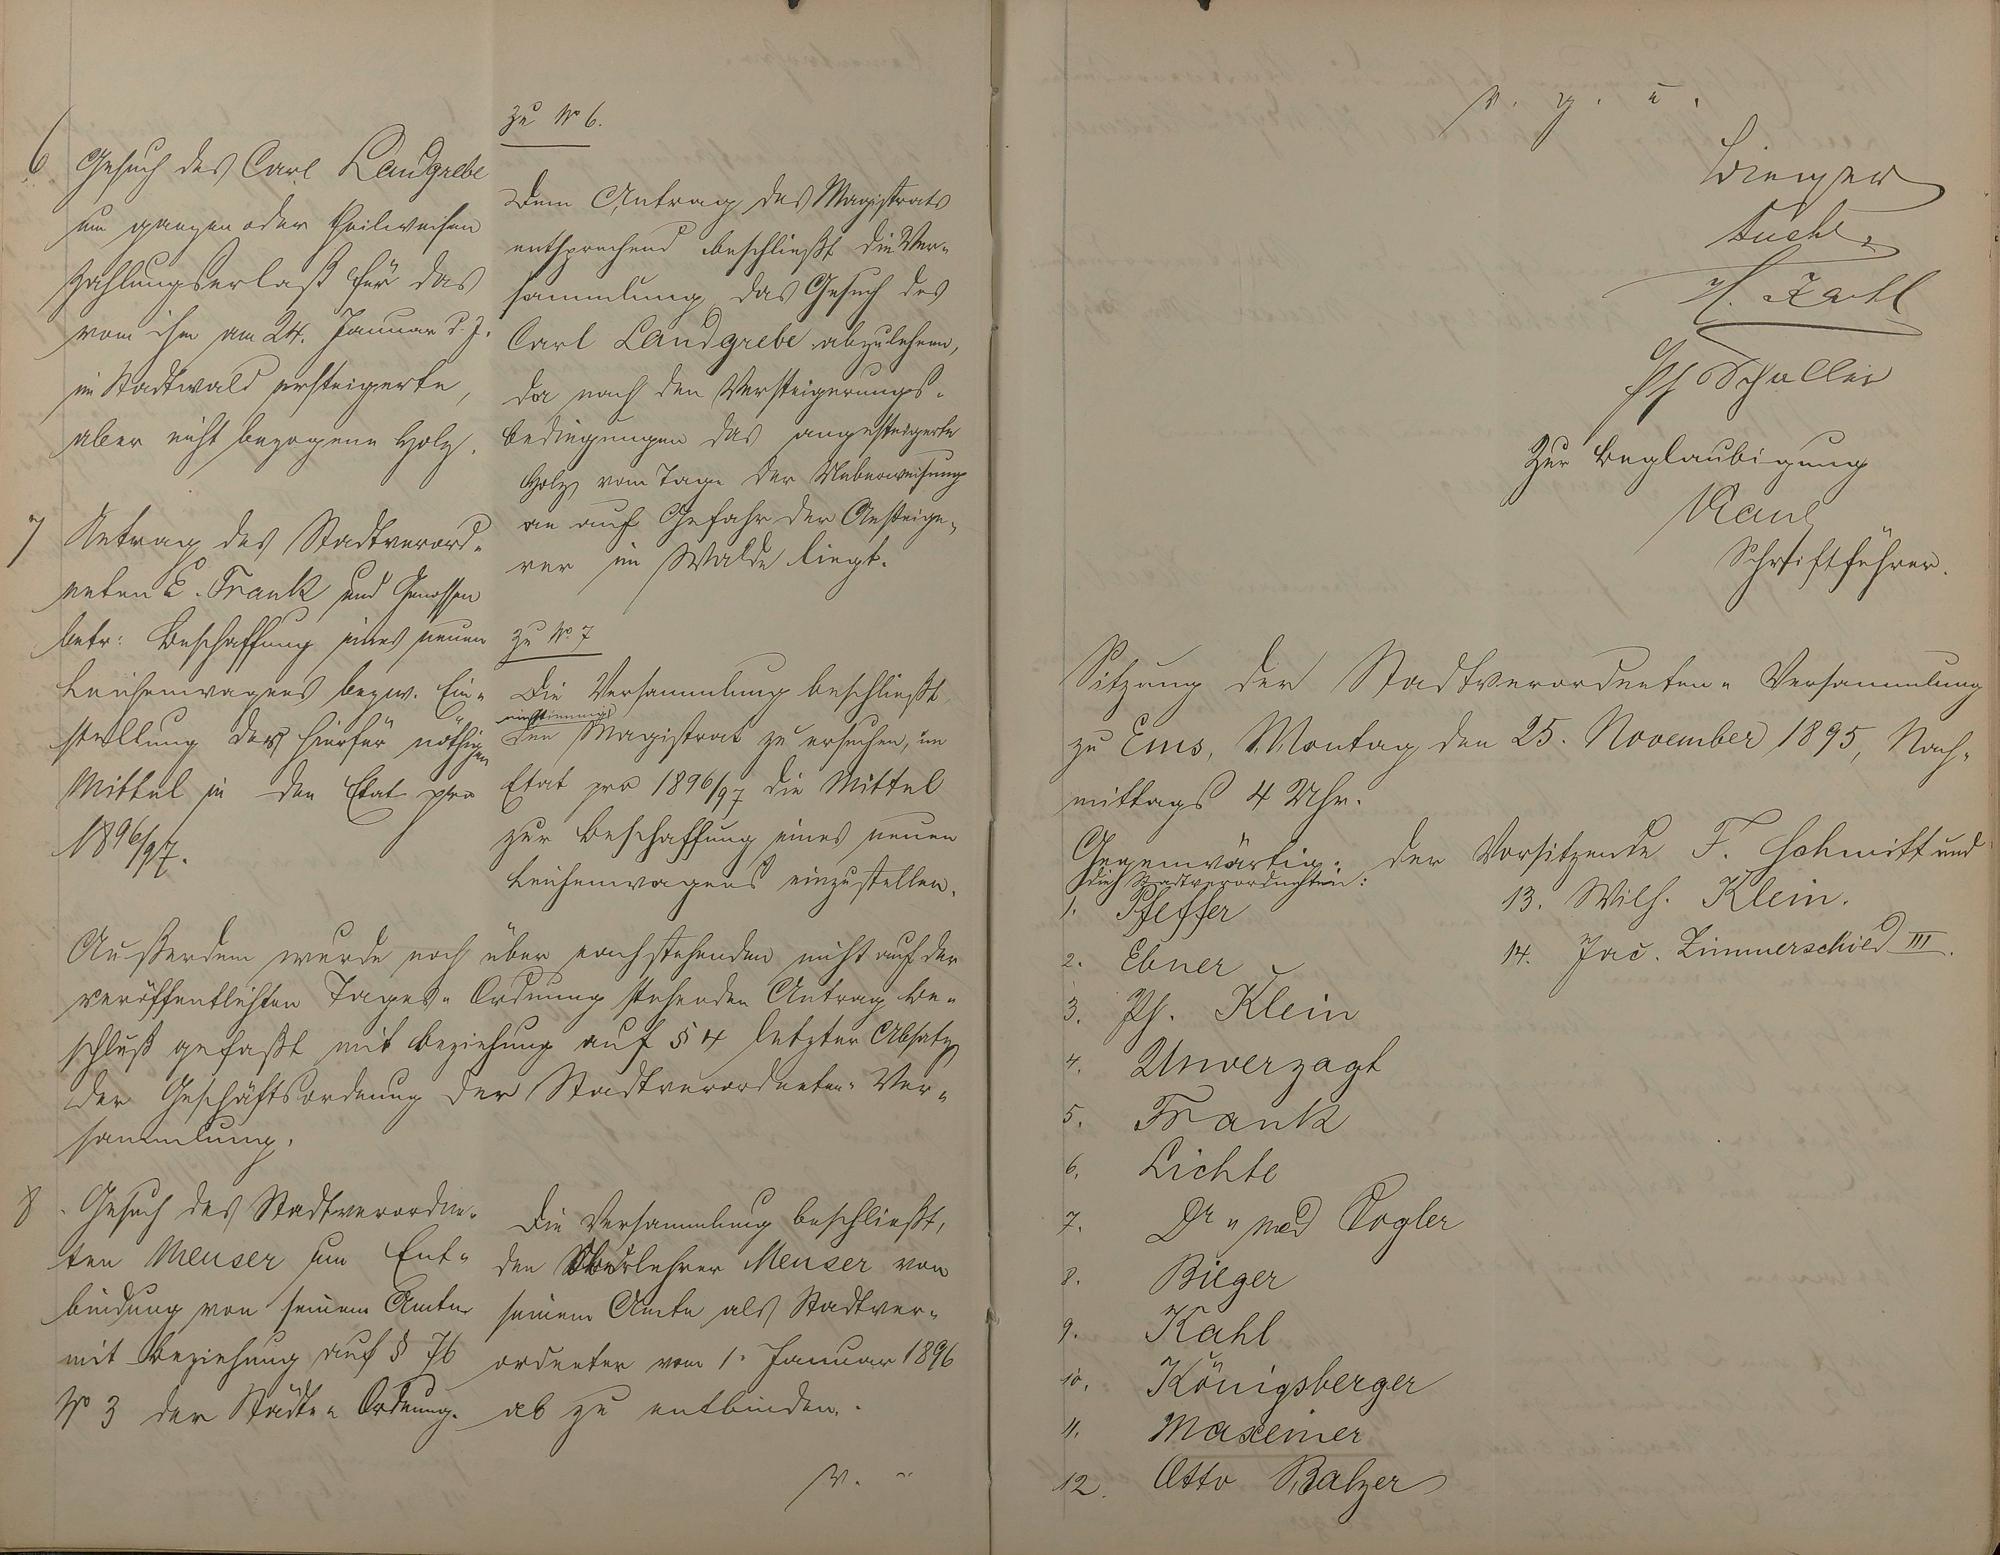 6 Gesuch des Carl Landgrebe
um ganzen oder theilweisen
Zahlungserlaß für das
vom ihm am 24. Januar d. J.
im Stadtwald ersteigerte,
aber nicht bezogene Holz.
zu No 6.
Dem Antrag des Magistrats
entsprechend beschließt die Ver-
sammlung das Gesuch des
Carl Landgrebe abzulehnen,
da nach den Versteigerungs-
bedingungen das angesteigerte
Holz vom Tage der Ueberweisung
an auf Gefahr der Ansteige-
rer im Walde liegt.
7 Antrag des Stadtverord-
neten E. Frank und Genossen
betr: Beschaffung eines neuen
Leichenwagens bezw. Ein-
stellung der hierfür nöthigen
Mittel in den Etat pro
1896/97.
zu No 7
Die Versammlung beschließt
einstimmig
den Magistrat zu ersuchen, im
Etat pro 1896/97 die Mittel
zur Beschaffung eines neuen
Leichenwagens einzustellen.
Außerdem wurde noch über nachstehenden nicht auf der
veröffentlichten Tages-Ordnung stehenden Antrag Be-
schluß gefaßt mit Beziehung auf § 4 letzter Absatz
der Geschäftsordnung der Stadtverordneten-Ver-
sammlung.
8. Gesuch des Stadtverordne-
ten Meuser um Ent-
bindung von seinem Amte
mit Beziehung auf § 76
No 3 der Städte-Ordnung.
Die Versammlung beschließt,
den Oberlehrer Meuser von
seinem Amte als Stadtver-
ordneter vom 1. Januar 1896
ab zu entbinden.
v.
v. g. u.
H. Kahl
Zur Beglaubigung
Schriftführer.
Sitzung der Stadtverordneten-Versammlung
zu Ems, Montag den 25. November 1895, Nach-
mittags 4 Uhr.
Gegenwärtig: der Vorsitzende F. Schmitt und
die Stadtverordneten:
1. Pfeffer
2. Ebner
3. Ph. Klein
4. Unverzagt
5. Frank
6. Lichte
7. Dr. med Vogler
8. Bieger
9. Kahl
10. Königsberger
11. Maxeiner
12. Otto Balzer
13. Wilh. Klein.
14. Jac. Zimmerschied III.